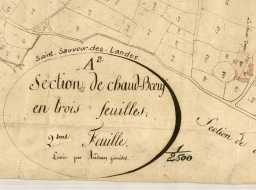 Saint-Sauveur-des-Landes
A2.
Section de chaud-Boeuf
en trois feuilles.
2eme. Feuille.
Levée par
1/2500
Section de